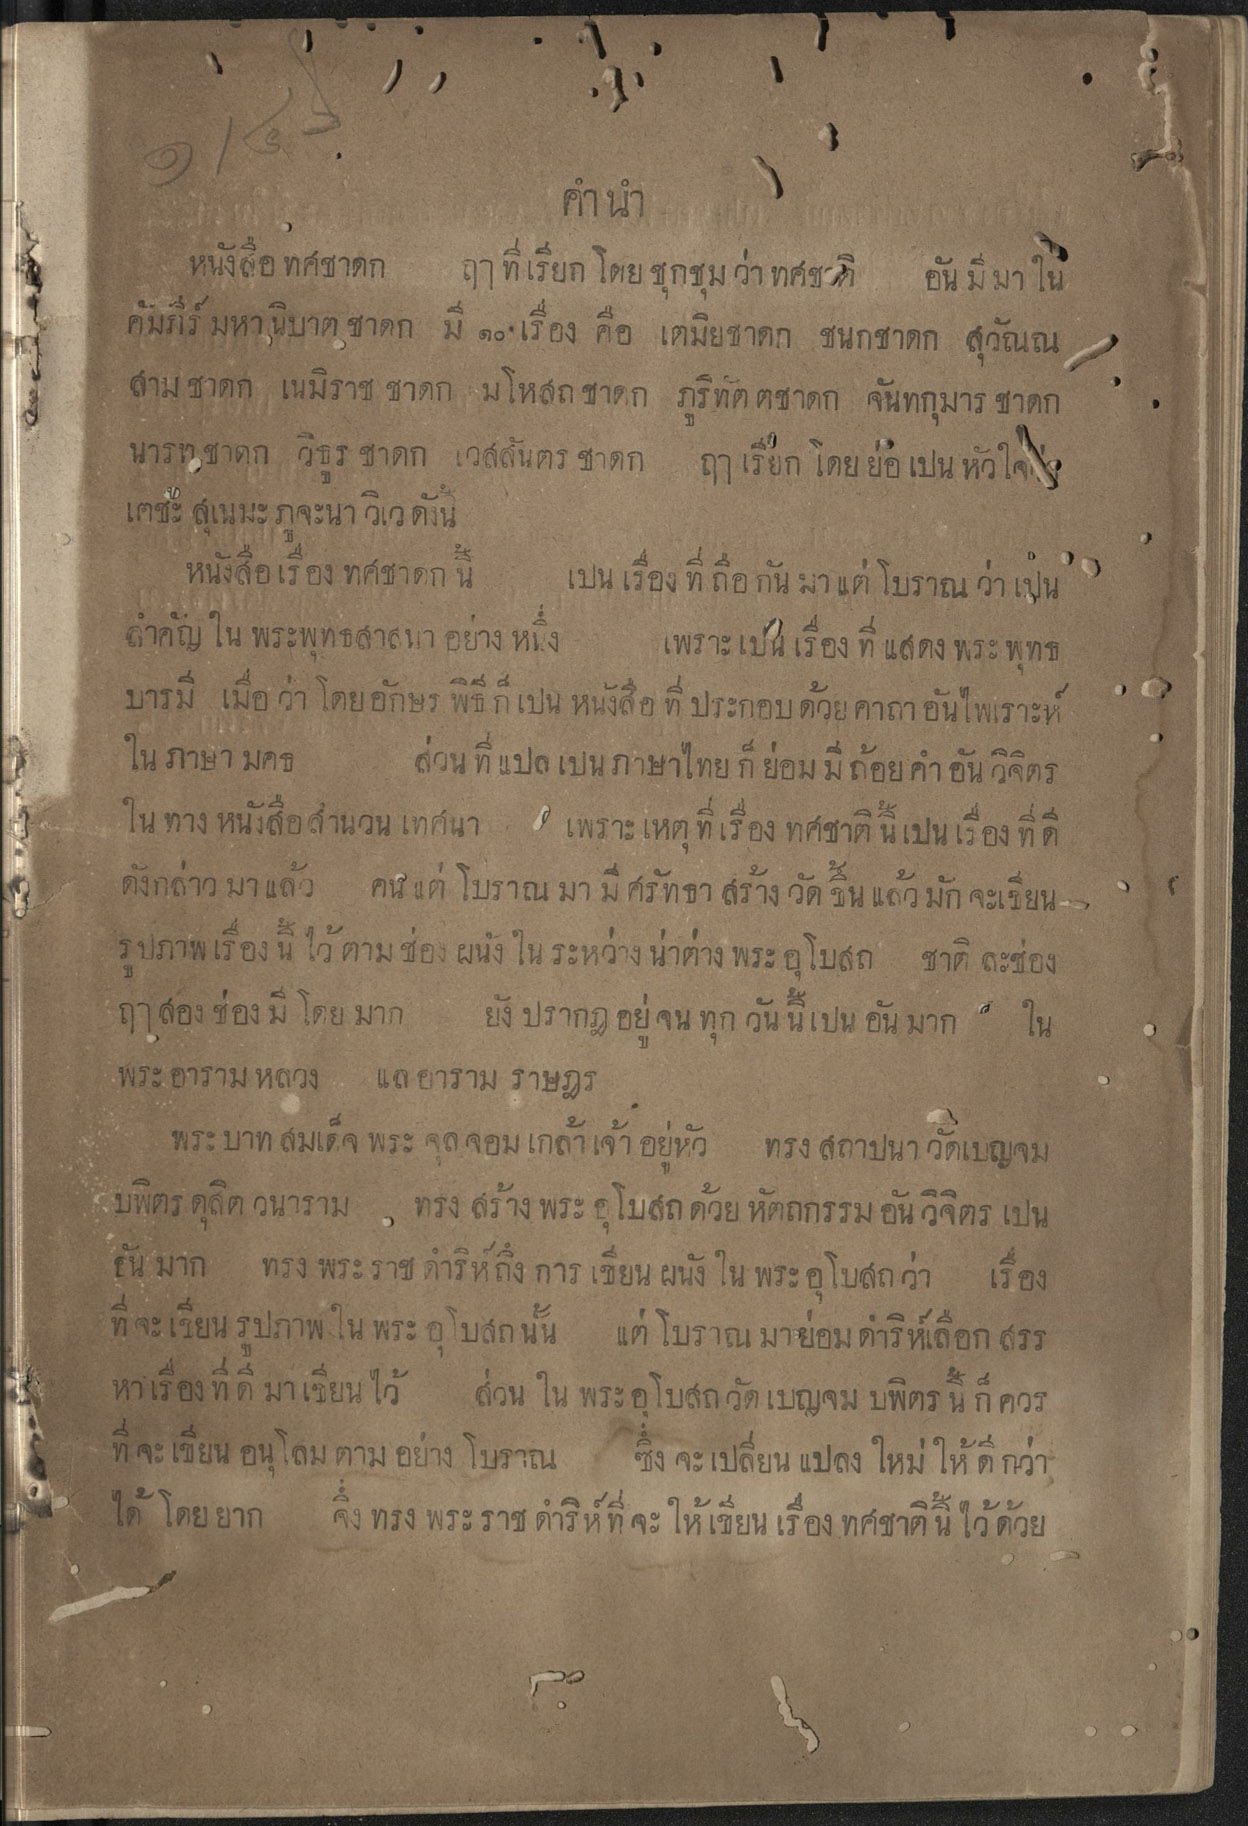 คำนำ
หนังสือ ทศชาดก ฤๅ ที่ เรียก โดย ชุกชุม ว่า ทศชาติ อัน มี มา ใน
คัมภีร์ มหานิบาต ชาดก มี ๑๐ เรื่อง คือ เตมิยชาดก ชนกชาดก สุวัณณ
สาม ชาดก เนมิราช ชาดก มโหสถ ชาดก ภูริทัต ตชาดก จันทกุมาร ชาดก
นารท ชาดก วิธูร ชาดก เวสสันตร ชาดก ฤๅ เรียก โดย ย่อ เปน หัวใจ
เตชะ สุเนมะ ภูจะนา วิเว ดังนี้
หนังสือ เรื่อง ทศชาดก นี้ เปน เรื่อง ที่ ถือ กัน มา แต่ โบราณ ว่า เปน
สำคัญ ใน พระพุทธสาสนา อย่าง หนึ่ง เพราะ เปน เรื่อง ที่ แสดง พระ พุทธ
บารมี เมื่อ ว่า โดย อักษร พิธี ก็ เปน หนังสือ ที่ ประกอบ ด้วย คาถา อันไพเราะห์
ใน ภาษา มคธ ส่วน ที่ แปล เปน ภาษาไทย ก็ ย่อม มี ถ้อย คำ อัน วิจิตร
ใน ทาง หนังสือ สำนวน เทศนา เพราะ เหตุ ที่ เรื่อง ทศชาติ นี้ เปน เรื่อง ที่ ดี
ดังกล่าว มา แล้ว คน แต่ โบราณ มา มี ศรัทธา สร้าง วัด ขึ้น แล้ว มัก จะเขียน
รูปภาพ เรื่อง นี้ ไว้ ตาม ช่อง ผนัง ใน ระหว่าง น่าต่าง พระ อุโบสถ ชาติ ละช่อง
ฤๅ สอง ช่อง มี โดย มาก ยัง ปรากฎ อยู่ จน ทุก วัน นี้ เปน อัน มาก ใน
พระ อาราม หลวง แล อาราม ราษฎร
พระ บาท สมเด็จ พระ จุล จอม เกล้า เจ้า อยู่หัว ทรง สถาปนา วัดเบญจม
บพิตร ดุสิต วนาราม ทรง สร้าง พระ อุโบสถ ด้วย หัตถกรรม อัน วิจิตร เปน
อัน มาก ทรง พระ ราช ดำริห์ ถึง การ เขียน ผนัง ใน พระ อุโบสถ ว่า เรื่อง
ที่ จะ เขียน รูปภาพ ใน พระ อุโบสถ นั้น แต่ โบราณ มา ย่อม ดำริห์เลือก สรร
หา เรื่อง ที่ ดี มา เขียน ไว้ ส่วน ใน พระ อุโบสถ วัด เบญจม บพิตร นี้ ก็ ควร
ที่ จะ เขียน อนุโลม ตาม อย่าง โบราณ ซึ่ง จะ เปลี่ยน แปลง ใหม่ ให้ ดี กว่า
ได้ โดย ยาก จึ่ง ทรง พระ ราช ดำริห์ ที่ จะ ให้ เขียน เรื่อง ทศชาติ นี้ ไว้ ด้วย